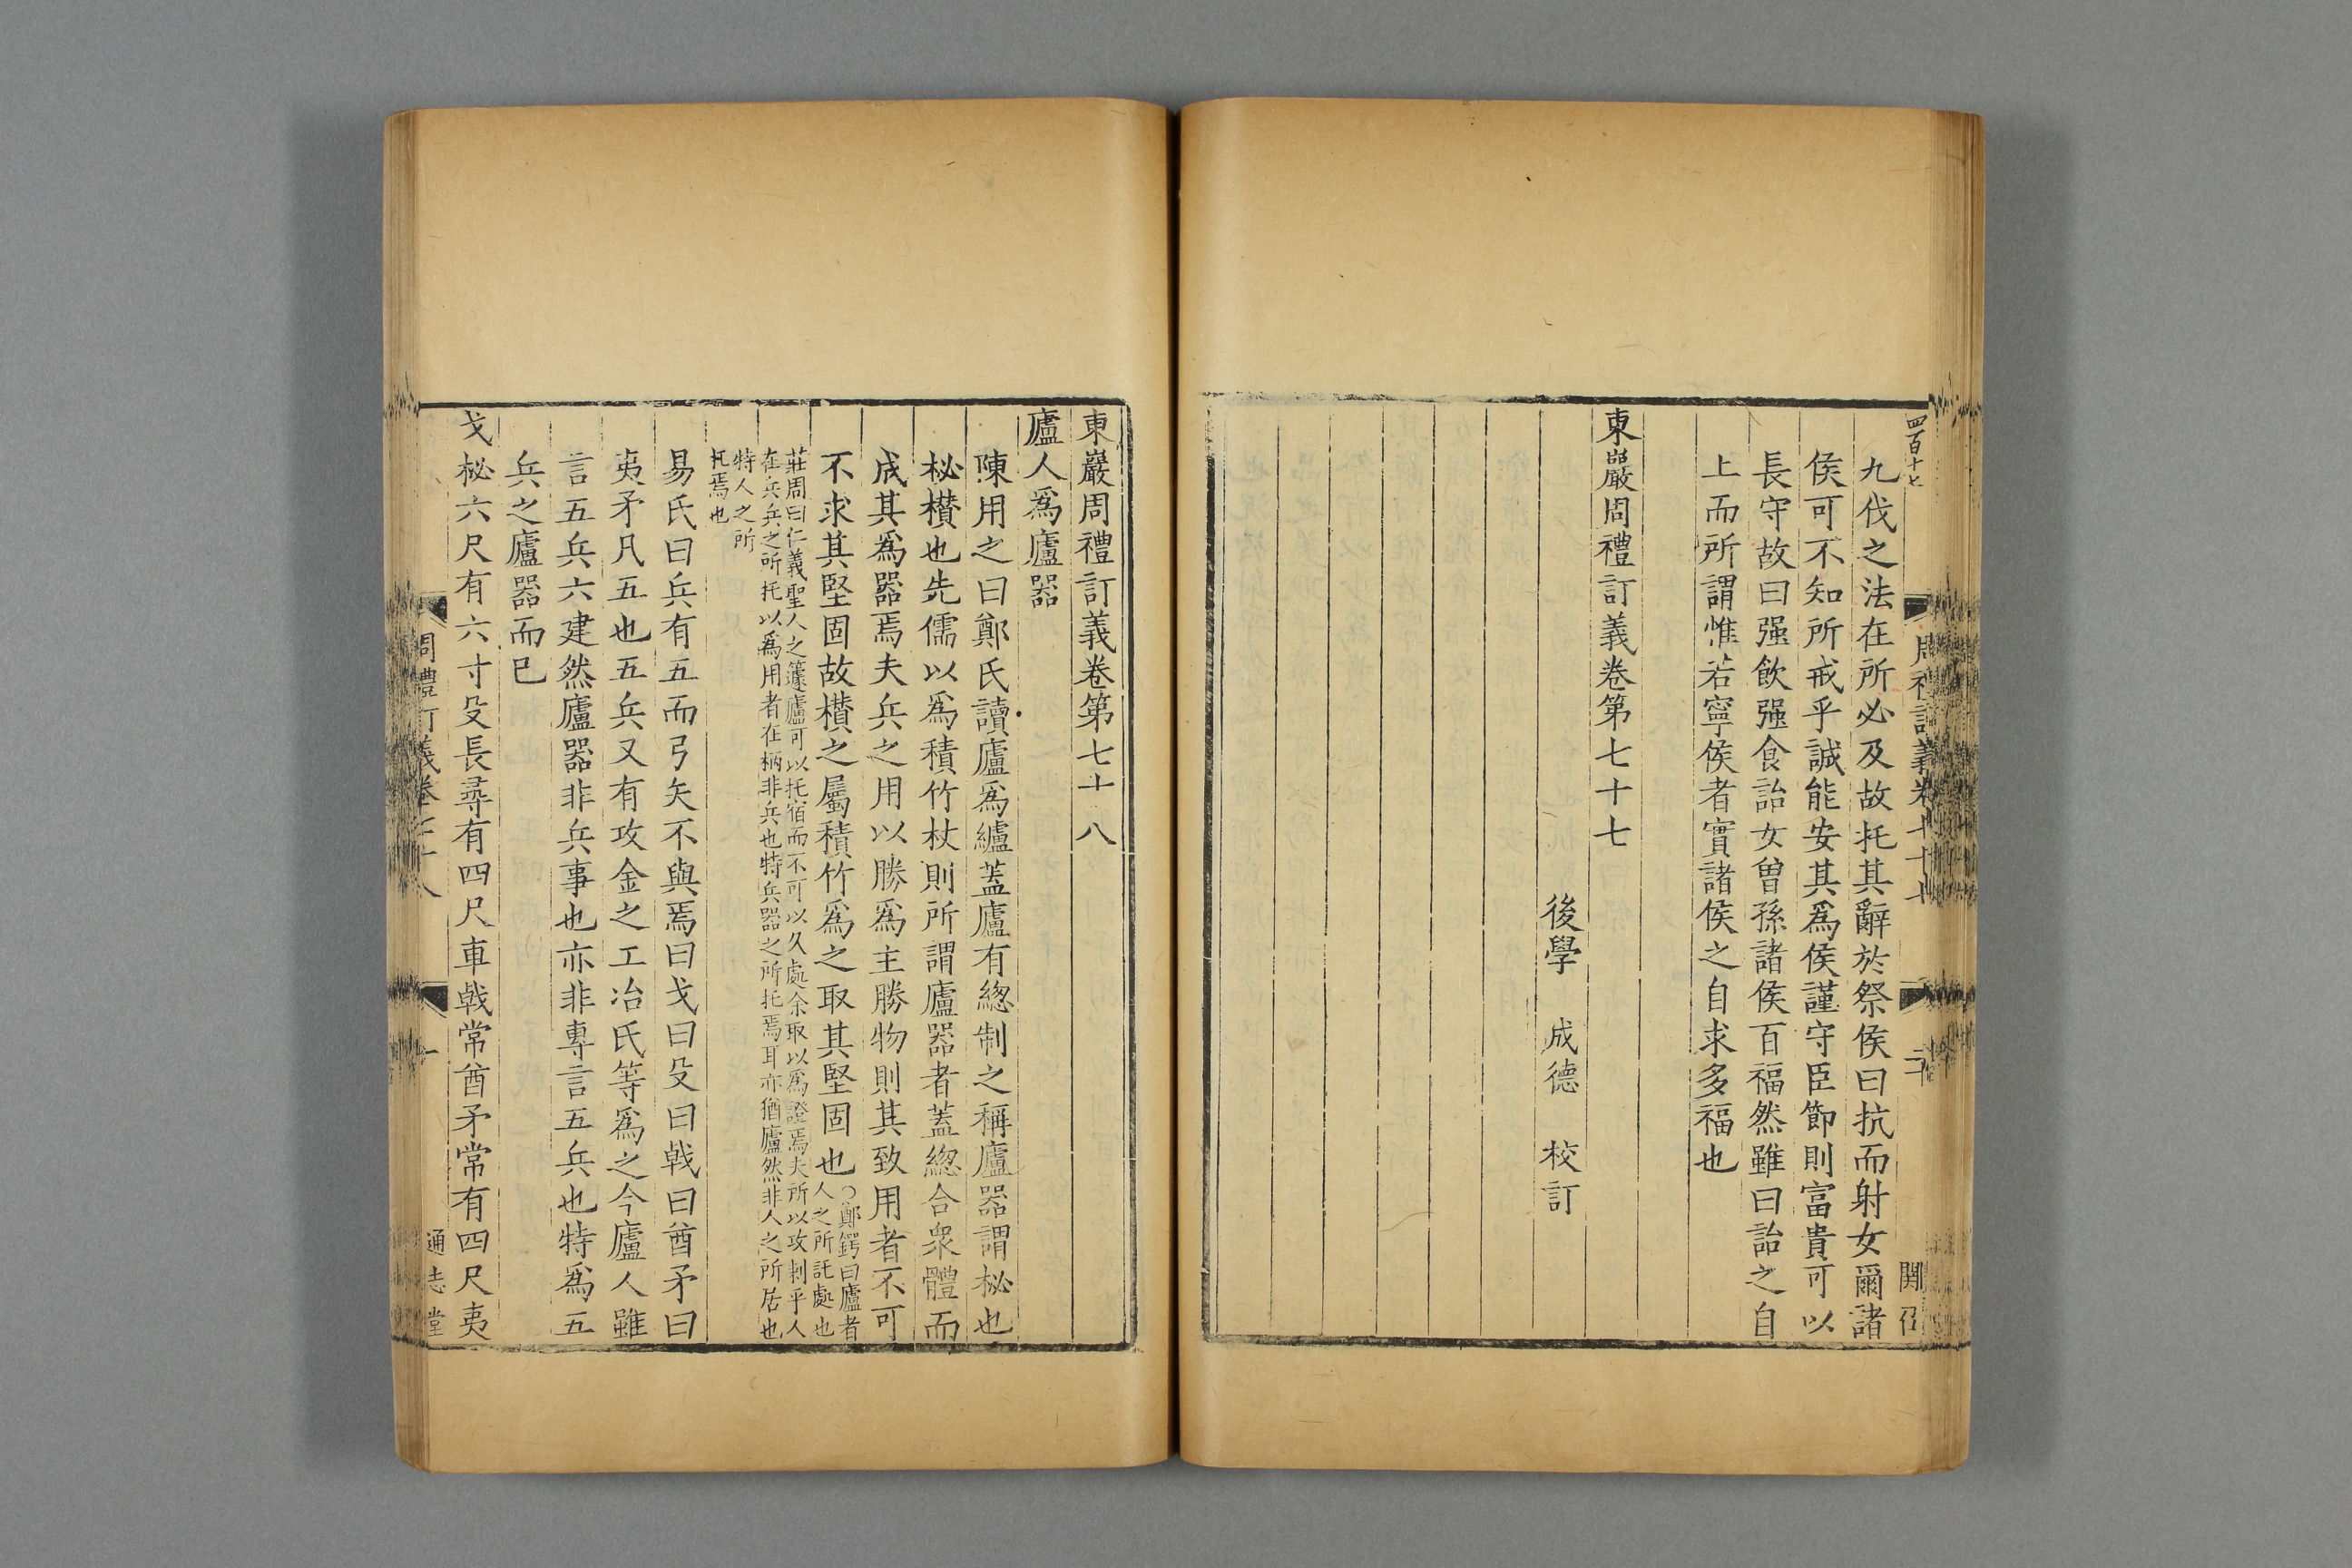 四百十七
周禮訂義卷七十七
二
九伐之法在所必及故托其辭於祭侯曰抗而射女爾諸
侯可不知所戒乎誠能安其爲侯謹守臣節則富貴可以
長守故曰强飲强食詒女曾孫諸侯百福然雖曰詒之自
上而所謂惟若寧侯者實諸侯之自求多福也
東巖周禮訂義卷第七十七
後學 成德 校訂
東巖周禮訂義卷第七十八
廬人爲廬器
陳用之曰鄭氏讀廬爲纑蓋廬有總制之稱廬器謂柲也
柲欑也先儒以爲積竹杖則所謂廬器者蓋緫合衆體而
成其爲器焉夫兵之用以勝爲主勝物則其致用者不可
不求其堅固故欑之屬積竹爲之取其堅固也○鄭鍔曰廬者
人之所託處也
莊周曰仁義聖人之蘧廬可以托宿而不可以久處余取以爲證焉夫所以攻刺乎人
在兵兵之所托以爲用者在柄非兵也特兵器之所托焉耳亦猶廬然非人之所居也
特人之所
托焉也
易氏曰兵有五而弓矢不與焉曰戈曰殳曰戟曰酋矛曰
夷矛凡五也五兵又有攻金之工冶氏等爲之今廬人雖
言五兵六建然廬器非兵事也亦非專言五兵也特爲五
兵之廬器而已
戈柲六尺有六寸殳長尋有四尺車戟常酋矛常有四尺夷
周禮訂義卷七十八
一
通志堂